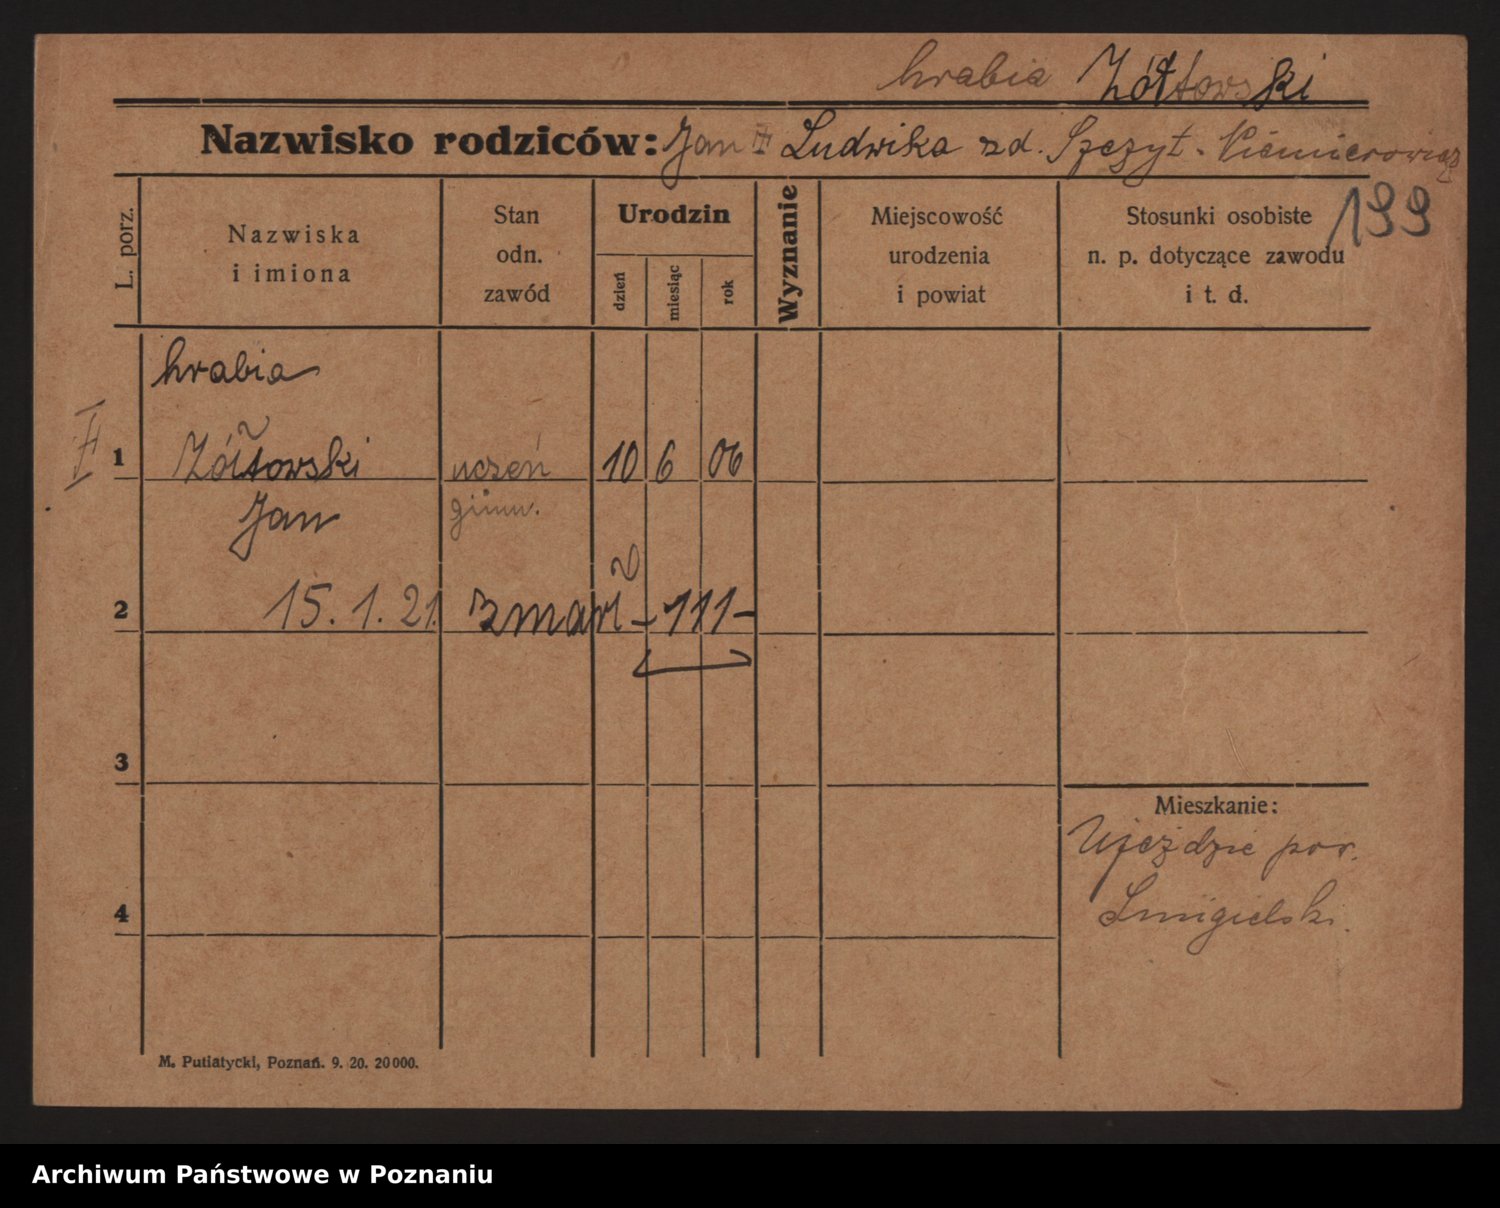 hrabia Żółtowski
Nazwisko rodziców: Jan I Ludwika zd. Szczyt-Niemierowicz
199
L. porz.
Nazwiska
i imiona
Stan
odn.
zawód
Urodzin
dzień
miesiąc
rok
Wyznanie
Miejscowość
urodzenia
i powiat
Stosunki osobiste
n. p. dotyczące zawodu
i t. d.
hrabia
1 Żółtowski uczeń 10 6 06
Jan gimn.
2 15.1.21. zmarł - 111-
3
Mieszkanie:
Ujeździe pow.
4 Śmigielski.
M. Putiatycki, Poznań. 9. 20. 20000.
Archiwum Państwowe w Poznaniu